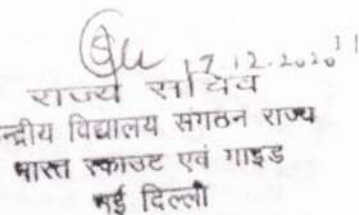 17.12.2020
राज्य सचिव
न्द्रीय विद्यालय संगठन राज्य
भारत स्काउट एवं गाइड
नई दिल्ली